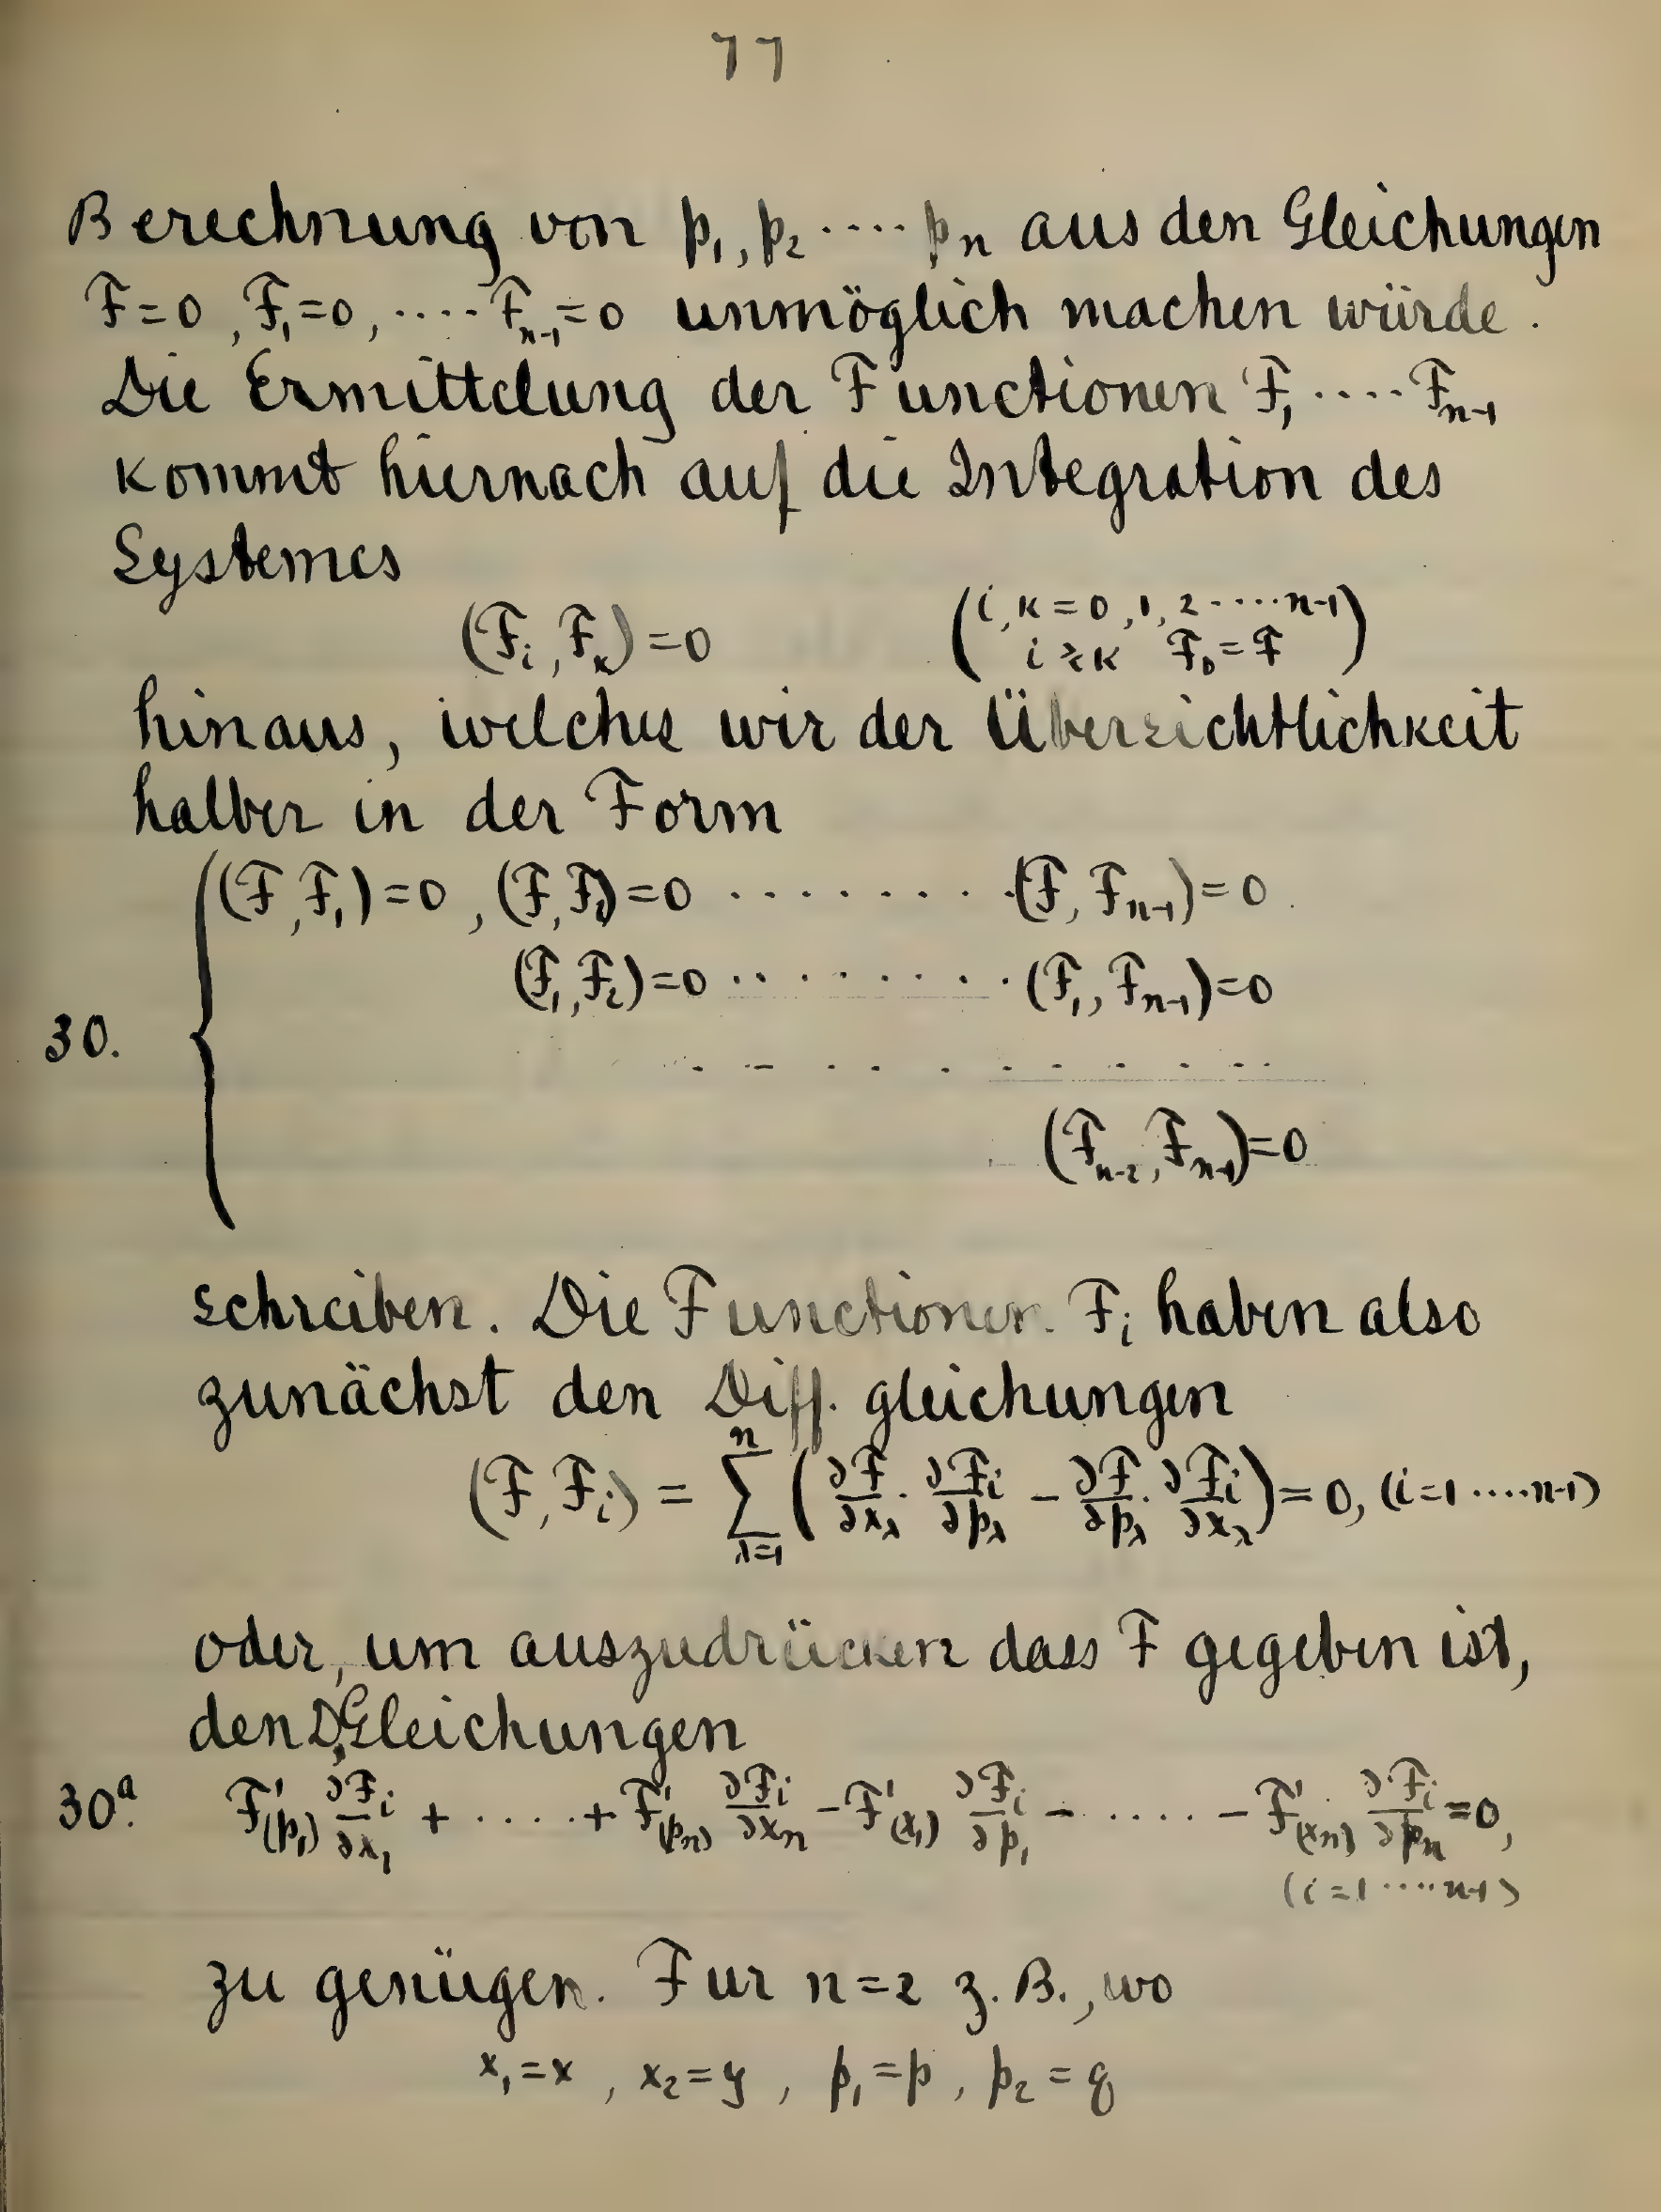 77
Berechnung von p₁, p₂ ···· pₙ aus den Gleichungen
F=0, F₁=0, ···· Fₙ₋₁=0 unmöglich machen würde.
Die Ermittelung der Functionen F₁ ···· Fₙ₋₁
kommt hiernach auf die Integration des
Systemes
(Fᵢ, F_κ) = 0 (i, κ = 0, 1, 2 ····· n-1
i ≷ κ F₀ = F)
hinaus, welches wir der Übersichtlichkeit
halber in der Form
(F, F₁) = 0, (F, F₂) = 0 ········ (F, Fₙ₋₁) = 0.
(F₁, F₂) = 0 ········ (F₁, Fₙ₋₁) = 0
30.
· · · · · · · · · ·
(Fₙ₋₂, Fₙ₋₁) = 0
schreiben. Die Functionen Fᵢ haben also
zunächst den Diff. gleichungen
(F, Fᵢ) = ∑_{λ=1}^{n} (∂F/∂x_λ · ∂Fᵢ/∂p_λ − ∂F/∂p_λ · ∂Fᵢ/∂x_λ) = 0, (i=1 ····· n-1)
oder, um auszudrücken dass F gegeben ist,
den D, Gleichungen
30ᵃ. F'(p₁) ∂Fᵢ/∂x₁ + ····· + F'(pₙ) ∂Fᵢ/∂xₙ − F'(x₁) ∂Fᵢ/∂p₁ − ····· − F'(xₙ) ∂Fᵢ/∂pₙ = 0,
(i=1 ····· n-1)
zu genügen. Fur n=2 z. B., wo
x₁=x, x₂=y, p₁=p, p₂=q